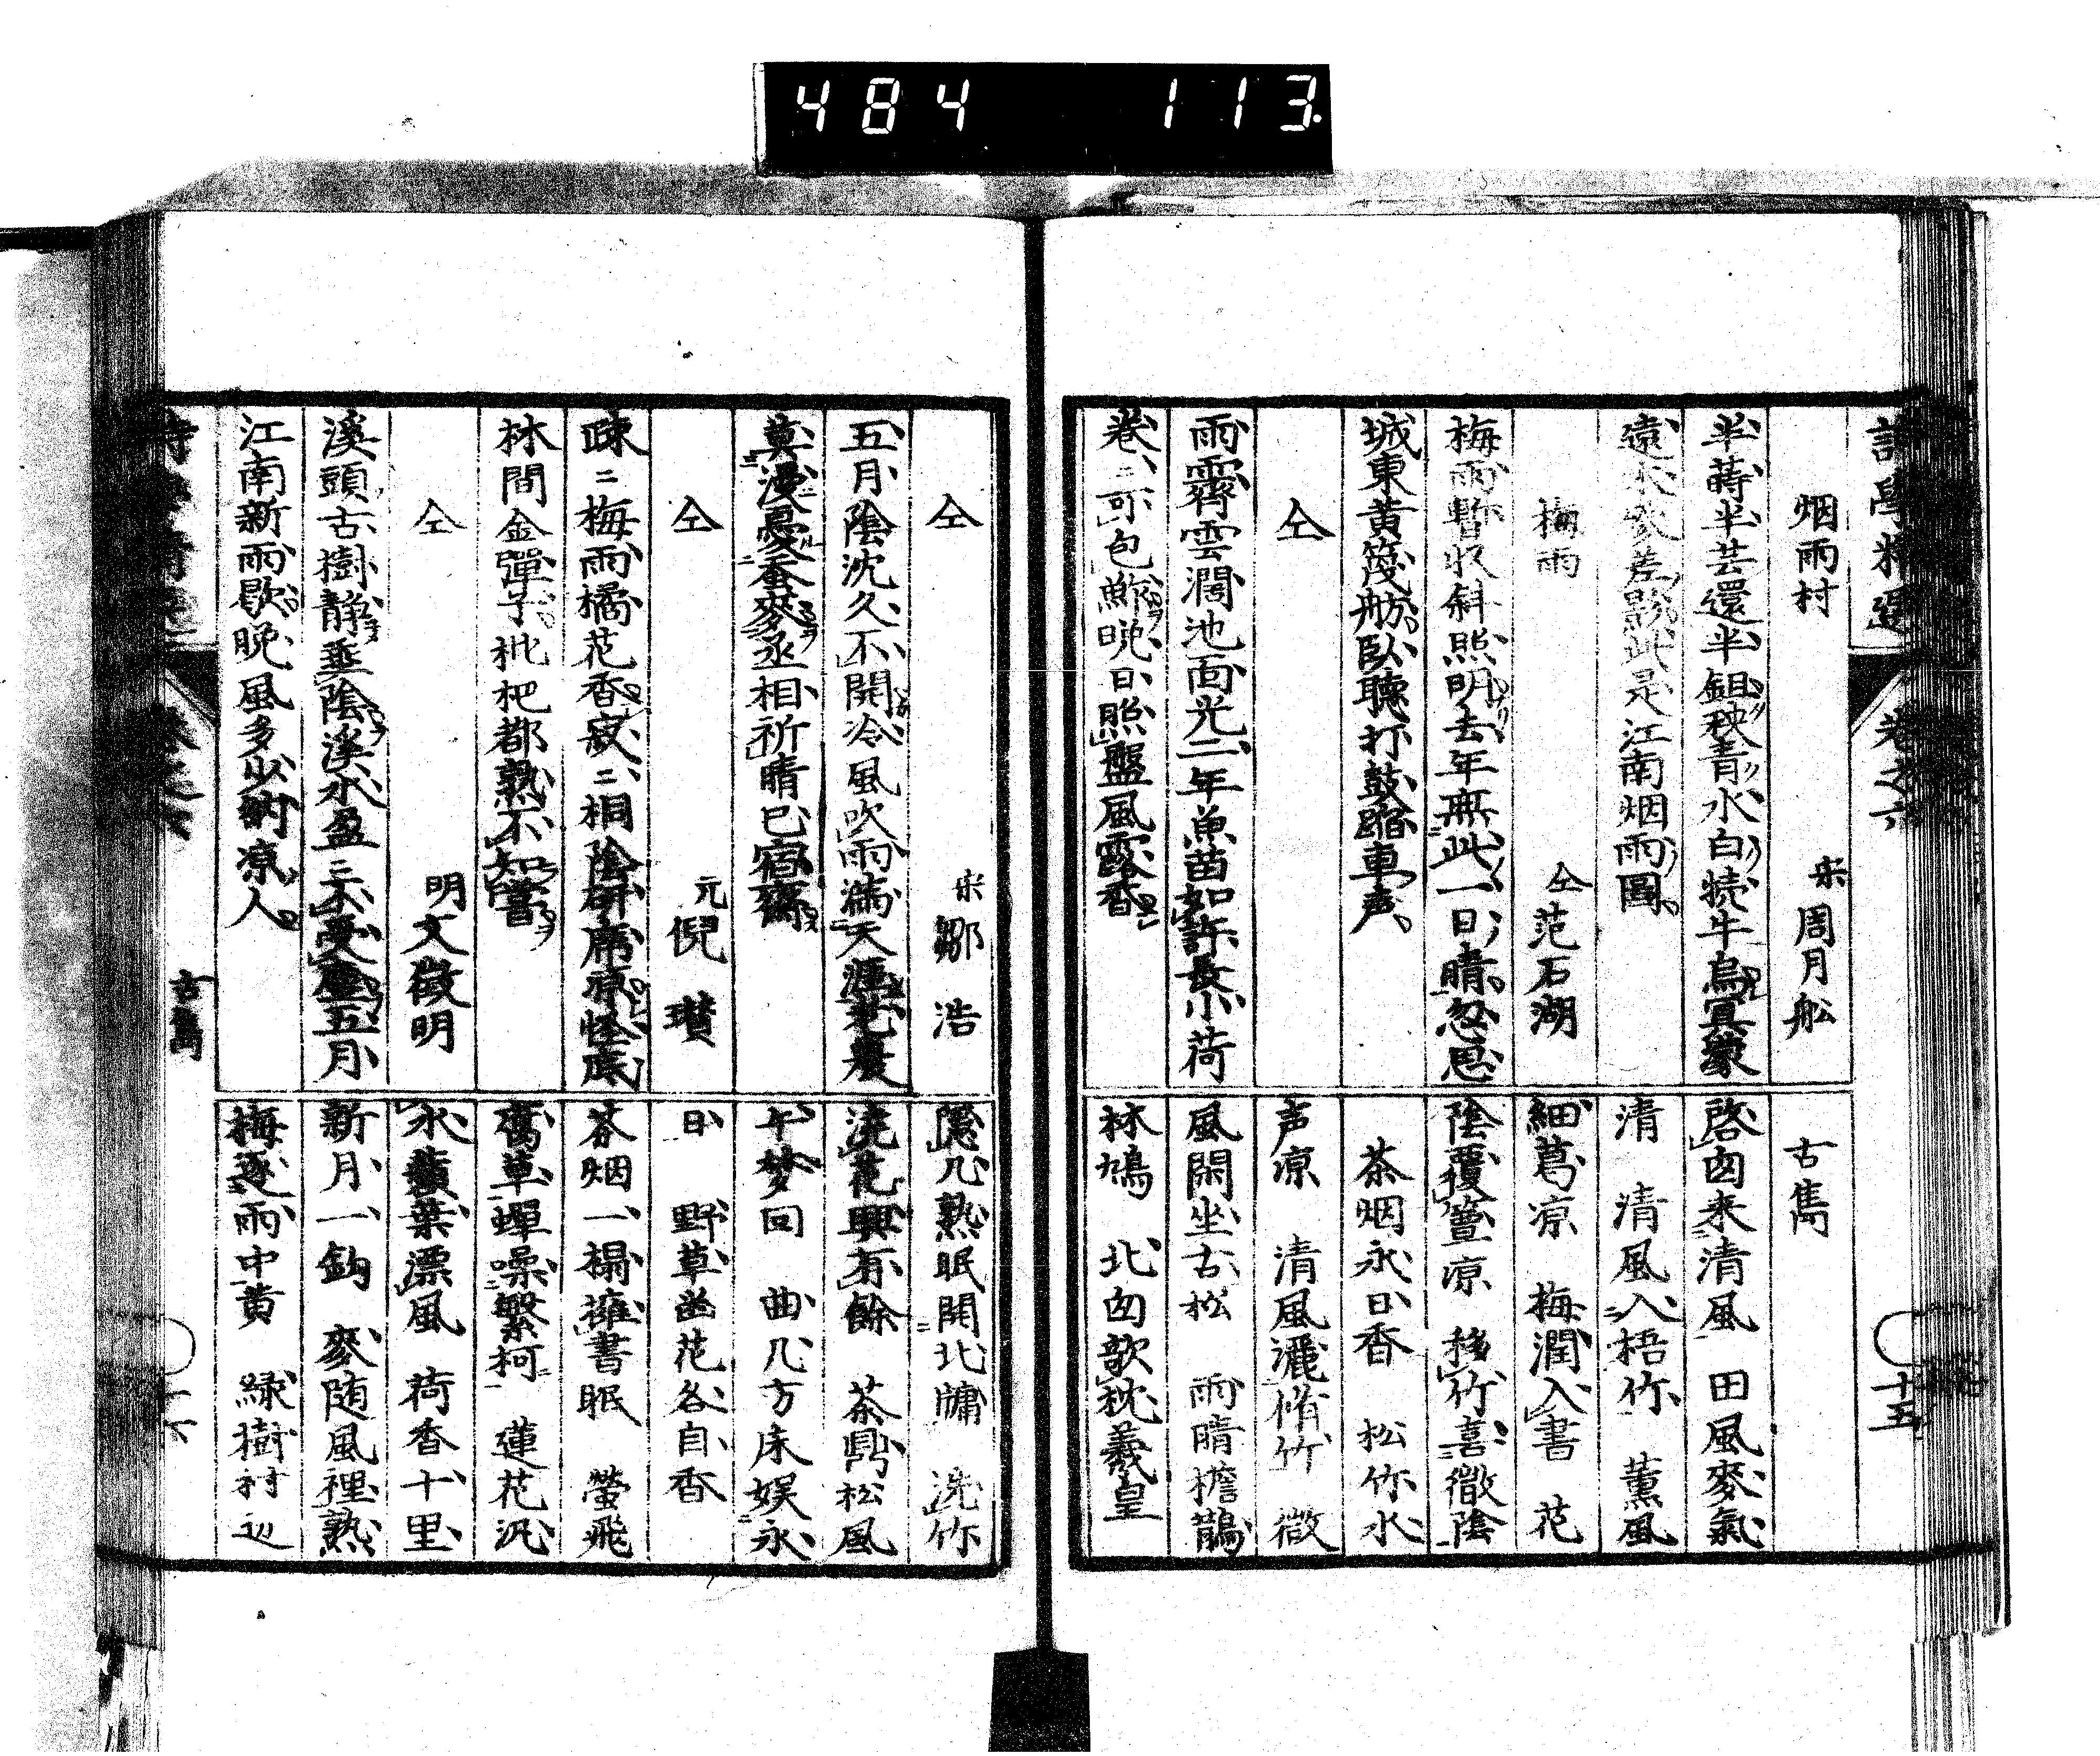 484 113.
詩學精選 卷之六 十五
烟雨村 宋 周月舩
半蒔半芸還半鉏秧青水白犢牛烏冥濛
遠水參差點此是江南烟雨圖
梅雨 仝 范石湖
梅雨暫収斜照明去年無此一日晴忽思
城東黄篾舫臥聽打鼓踏車声
仝
雨霽雲濶池面光二年魚苗如許長小荷
卷〻可包鮓晩日照盤風露香
古雋
啓囱来清風 田風麥氣
清 清風入梧竹 薫風
細葛凉 梅潤入書 花
陰覆簟凉 移竹喜微陰
茶烟永日香 松竹水
声凉 清風灑脩竹 微
風閑坐古松 雨晴檐鵲
林鳩 北囱欹枕羲皇
仝 宋 鄒 浩
五月陰沈久不開冷風吹雨滿天涯老農
莫漫憂蚕麥丞相祈晴已宿齋
仝 元 倪 瓚
疎〻梅雨橘花香寂〻桐陰研席凉怪底
林間金彈子枇杷都熟不知嘗
仝 明 文徴明
溪頭古樹静垂陰溪水盈〻不受塵五月
江南新雨歇晩風多少納凉人
隱几熟眠開北牗 洗竹
澆花興有餘 茶鼎松風
午梦回 曲几方床娱永
日 野草幽花各自香
茶烟一榻擁書眠 螢飛
腐草蟬噪繁柯 蓮花汎
水蘋葉漂風 荷香十里
新月一鈎 麥随風裡熟
梅逐雨中黄 緑樹村辺
古雋